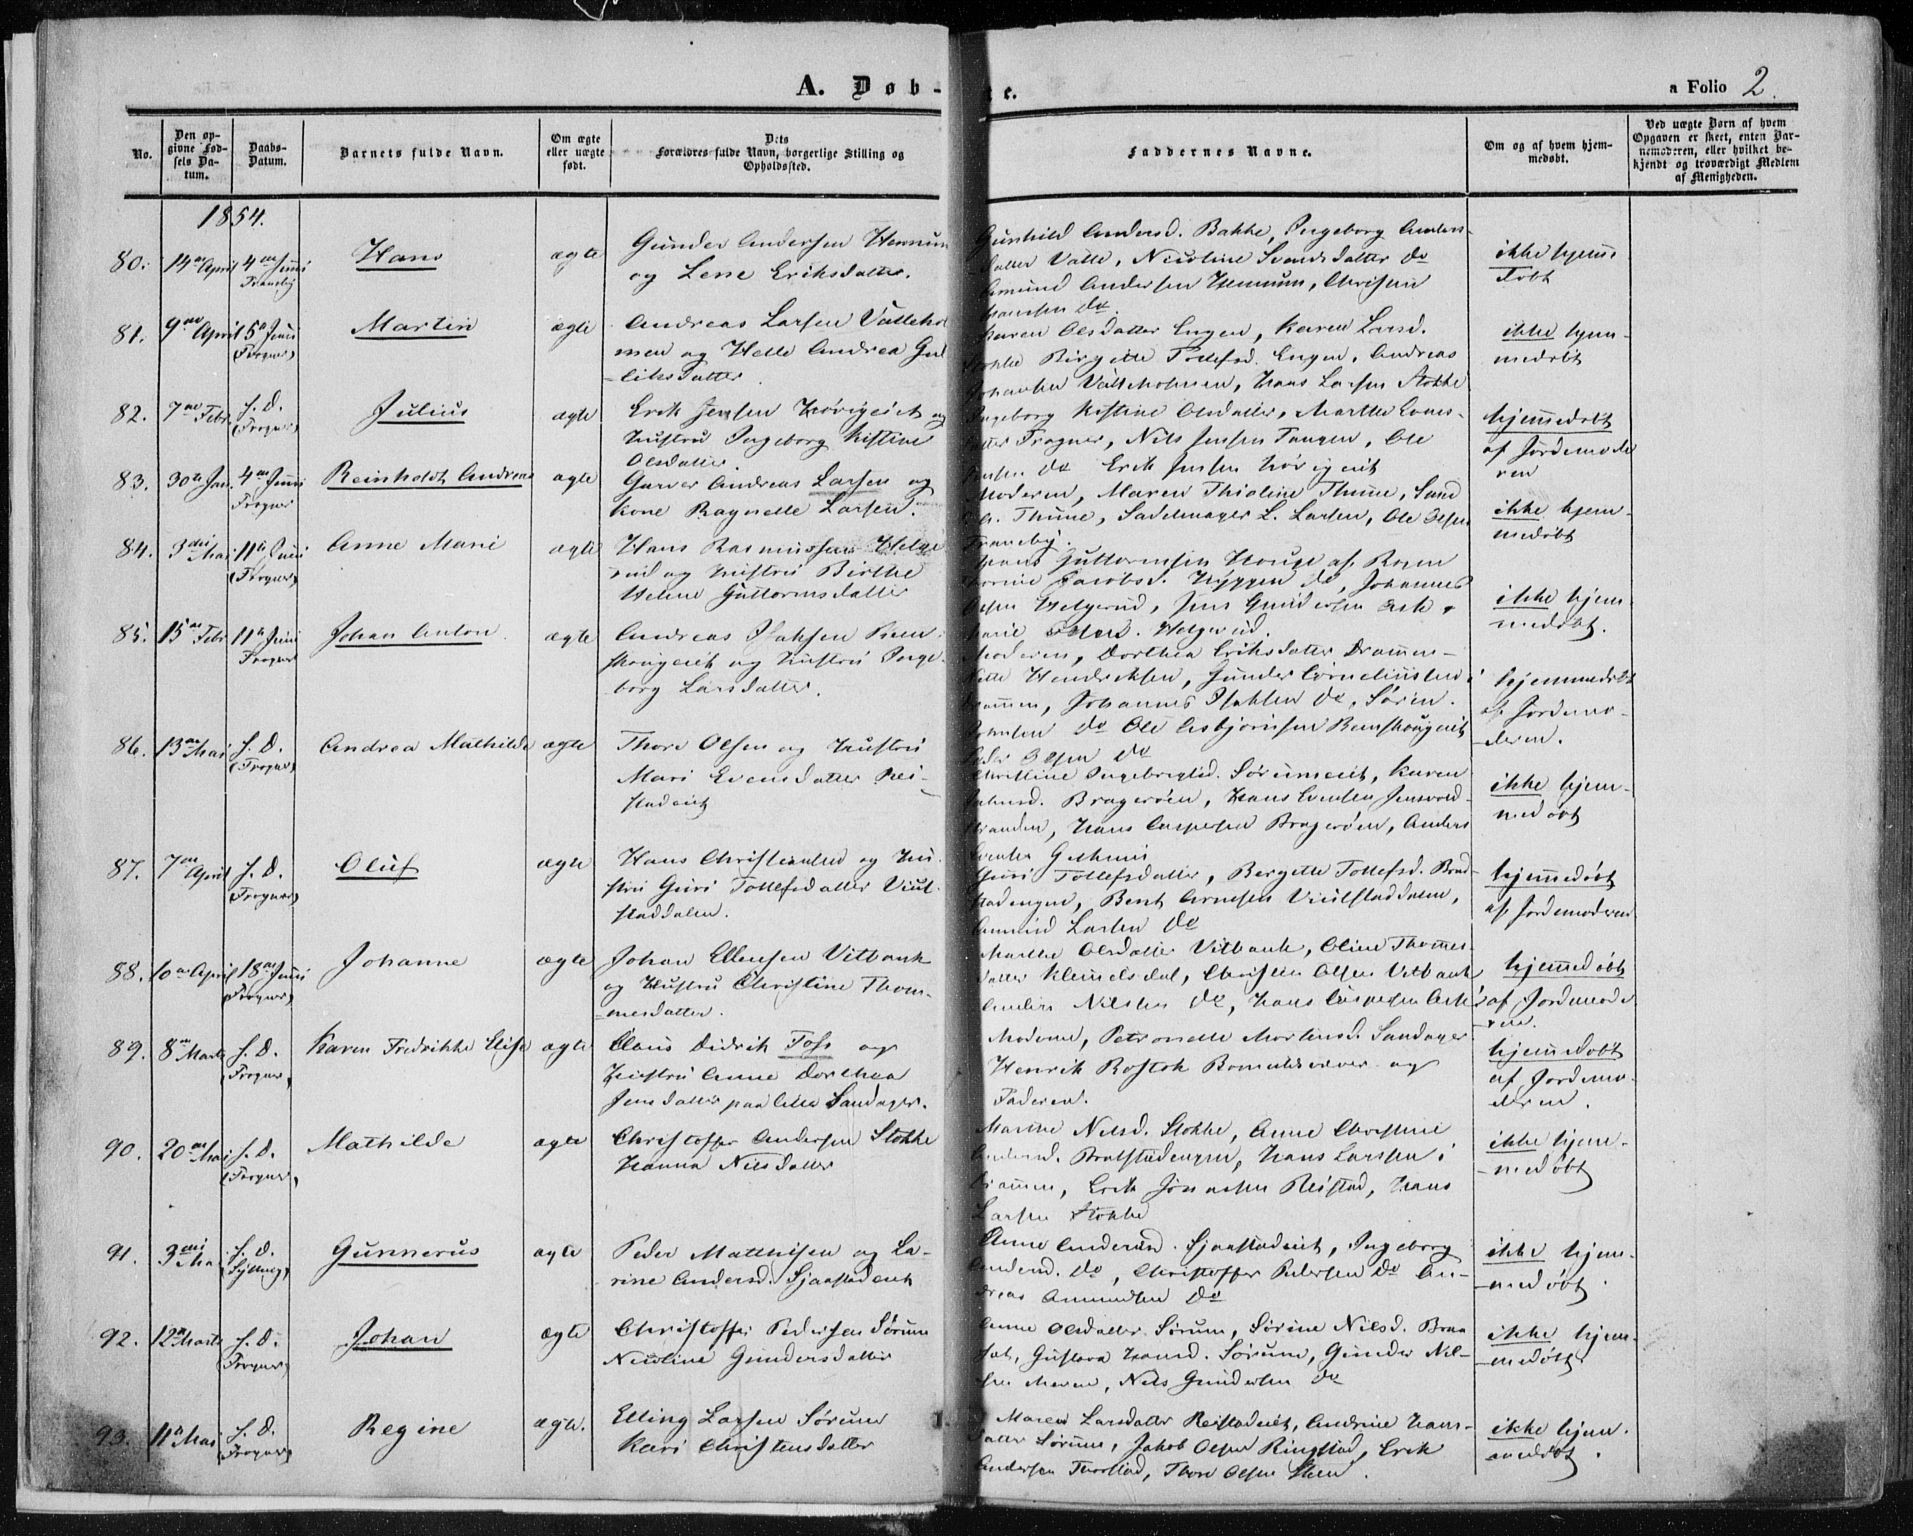 A. Døb-
te.
a Folio 2.
No.
Den op-
givne Fød-
sels Da-
tum.
Daabs-
Datum.
Barnets fulde Navn.
Om ægte
eller uægte
født.
Dets
Forældres fulde Navn, borgerlige Stilling og
Opholdssted.
Faddernes Navne.
Om og af hvem hjem-
medøbt.
Ved uægte Børn af hvem
Opgaven er skeet, enten Bar-
nemoderen, eller hvilket be-
kjendt og troværdigt Medlem
af Menigheden.
1854.
80. 14de April 4de Juni
Hans
ægte
Gunder Andersen
og Lene Eriksdatter.
Gunhild Andersd. Bakke, Ingeborg Anders-
datter Valle, Nicoline Svendsdatter do
Amund Andersen Hennum, Christen
Hansen do
ikke hjemme
døbt
81. 9de April 5te Juni
(Frogner)
Martin
ægte
Andreas Larsen Vallehol
men og Helle Andrea Gul
liksdatter
Karen Olsdatter Engen, Karen Larsd.
Stokke Birgitte Tollefsd. Engen, Andreas
Johansen Valleholmen, Hans Larsen Stokke
ikke hjem-
medøbt
82. 7de Febr. s. D.
(Frogner)
Julius
ægte
Erik Jensen
Hustru Ingeborg Kistine
Olsdatter
Ingeborg Kistine Olsdatter, Marthe
datter Frogner, Nils Jensen Tangen, Ole
Jensen do Erik Jensen
hjemmedøbt
af Jordemode
ren
83. 30te Jan. 4de Juni
Frogner
Reinholdt Andreas
ægte
Garver Andreas Larsen og
Kone Ragnelle Larsen.
Moderen, Maren Thioline Thune,
Thune, Sadelmager L. Larsen, Ole Olsen
Franeby.
ikke hjem-
medøbt
84. 3die Mai 11te Juni
(Frogner)
Anne Marie
ægte
Hans Rasmussen Helge
rud og Hustru Birthe
Helene Guttormsdatter
Hans Guttormsen Hauge af
Jacobsd. Hyggen do, Johannes
Olsen Helgerud, Jens Gundersen Ask,
Marie Helgerud.
ikke hjem-
medøbt.
85. 15de Febr 11te Juni
Frogner
Johan Anton
ægte
Andreas Isaksen
og Hustru Inge-
borg Larsdatter.
Moderen, Dorthea Eriksdatter Drammen-
Hendriksen, Gunder Corneliussen i
Drammen, Johannes Isaksen do, Søren
do Ole Asbjørnsen
Peder Olsen do
hjemmedøbt
af Jordemo-
deren.
86. 13de Mai s. D.
(Frogner)
Andrea Mathilde
ægte
Thore Olsen og Hustru
Mari Evensdatter Rei-
stadeiet
Christine Ingebrigtsd. Sørumeiet, Karen
Bragerøen, Hans Evensen
Hans Caspersen Bragerøen, Anders
ikke hjem-
medøbt
87. 7de April s. D.
(Frogner)
Oluf
ægte
Hans Christiansen og Hu-
stru Guri Tollefsdatter Viul-
staddalen.
Guri Tollefsdatter, Bergette Tollefsd.
Bent Arnesen Viulstaddalen,
Amund Larsen do
hjemmedøbt
af Jordemoderen
88. 10de April 18de Juni
(Frogner)
Johanne
ægte
Johan Ellensen Vitbank
og Hustru Christine Thom-
mesdatter.
Marthe Olsdatter Vitbank, Oline Thommes-
datter Klemelsdal, Christen Olsen Vitbank
Anders Nilsen do, Hans Caspersen Ask
hjemmedøbt
af Jordemode
ren.
89. 8de Marts s. D.
(Frogner)
Karen Fredrikke Elise
ægte
Claus Didrik Foss og
Hustru Anne Dorthea
Jensdatter paa Lille Sandager.
Moderne, Petronelle Mortensd. Sandager
Henrik Rostok og
Faderen.
hjemmedøbt
af Jordemo-
deren.
90. 20de Mai s. D.
(Frogner)
Mathilde
ægte
Christoffer Andersen Stokke
Hanna Nilsdatter
Marthe Nilsd. Stokke, Anne Christine
Andersd. Hans Larsen i
Drammen, Erik Reistad, Hans
Larsen Stokke
ikke hjem-
medøbt
91. 3die Mai s. D.
(Sylling)
Gunnerus
ægte
Peder Mathisen og La-
rine Andersd. Sjaastadeiet
Anne Andersd. Sjaastadeiet, Ingeborg
Andersd. do, Christoffer Pedersen do An-
dreas Amundsen do
ikke hjem-
medøbt.
92. 12te Marts s. D.
(Frogner)
Johan
ægte
Christoffer Pedersen Sørum
Nicoline Gundersdatter
Anne Olsdatter Sørum, Sørine Nilsd.
Gustava Hansd. Sørum, Gunder Nil-
sen Moren, Nils Gundersen do
ikke hjem-
medøbt
93. 11te Mai s. D.
(Frogner)
Regine
ægte.
Elling Larsen Sørum
Kari Christensdatter
Maren Larsdatter Reistadeiet, Andrine Hans-
datter Sørum, Jakob Olsen Ringstad, Erik
Andersen Thorstad, Thore Olsen Steen.
ikke hjem-
medøbt.